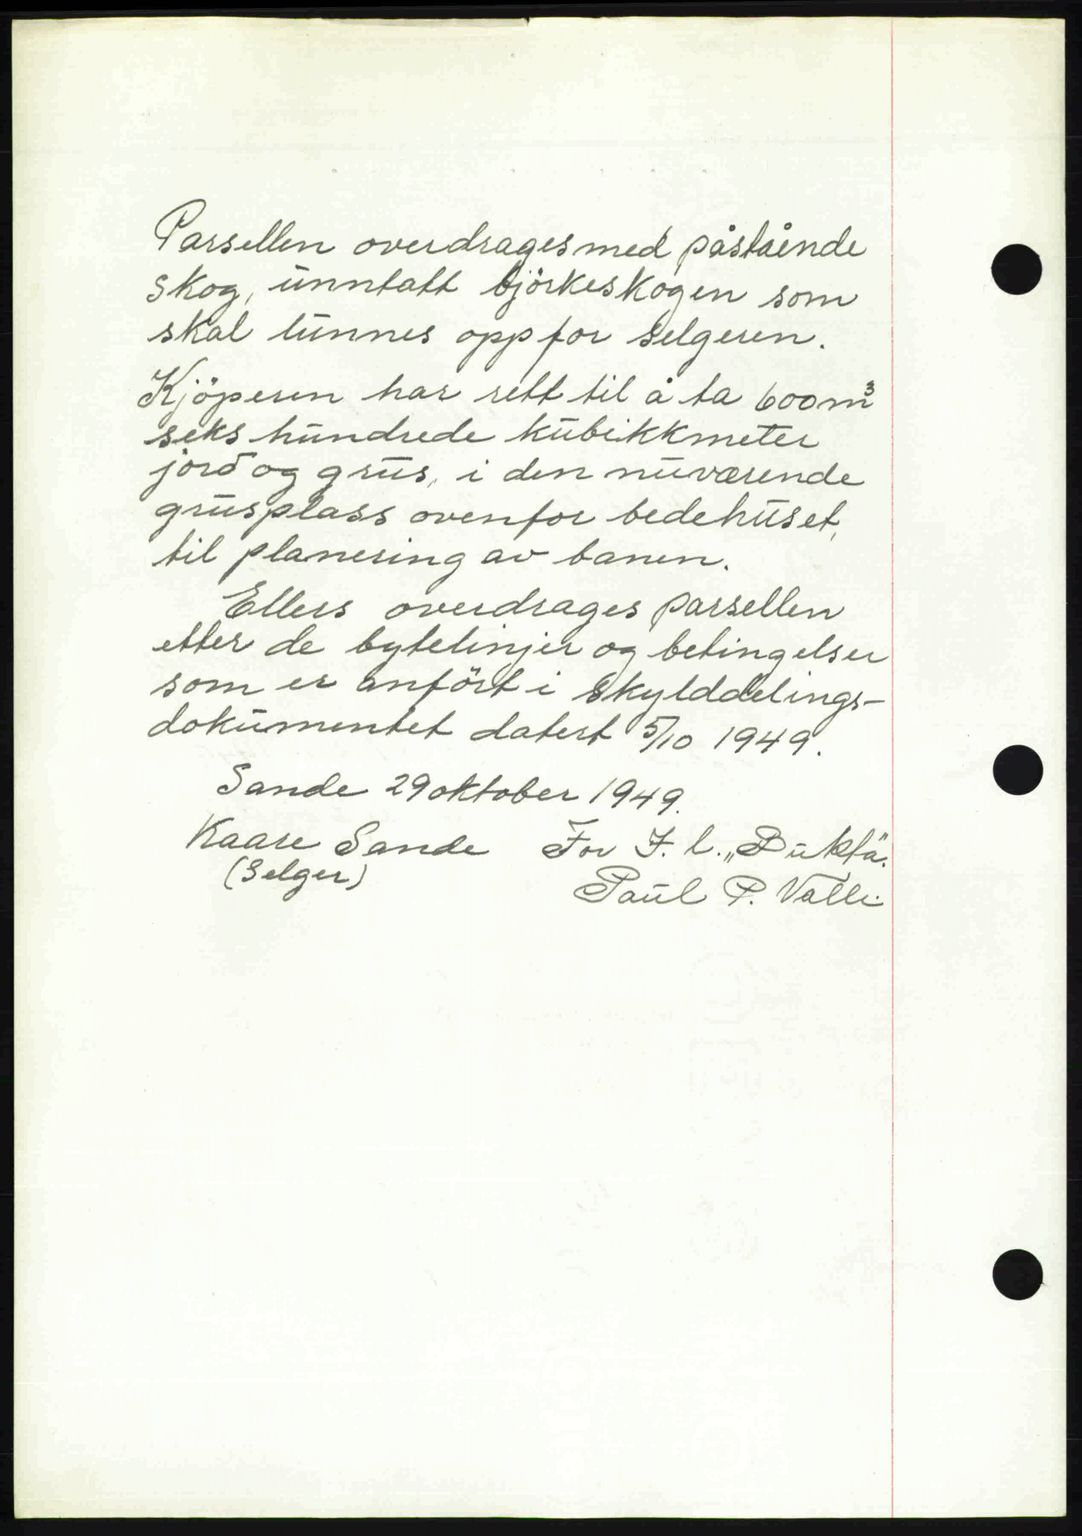 Parsellen overdrages med påstående
skog, unntatt björkeskogen som
skal tunnes opp for selgeren.
Kjöperen har rett til å ta 600 m³
seks hundrede kubikkmeter
jord og grus, i den nuværende
grusplass ovenfor bedehuset,
til planering av banen.
Ellers overdrages parsellen
etter de bytelinjer og betingelser
som er anfört i skylddelings-
dokumentet datert 5/10 1949.
Sande 29 oktober 1949.
Kaare Sande For I. l. „Buktä.
(Selger) Paul P. Valle.